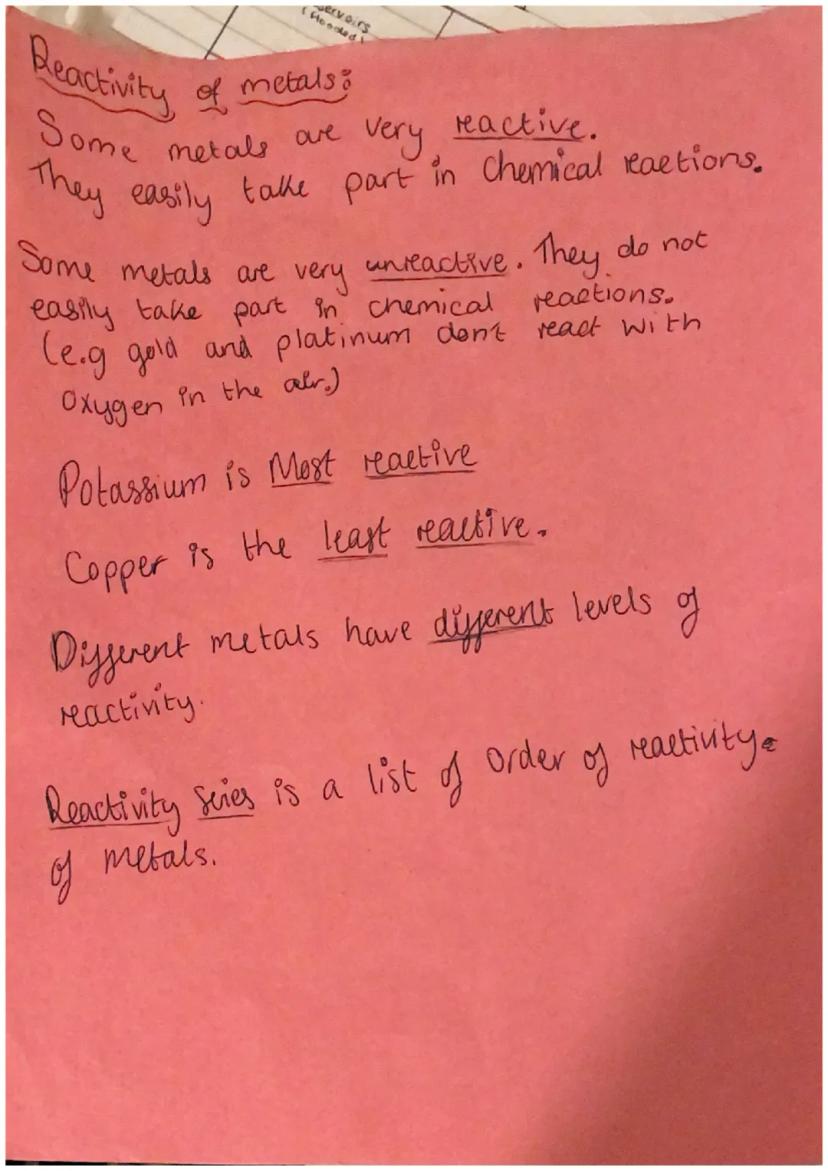 servoirs
(Hooded)
Reactivity of metals:
Some metals are very reactive.
They easily take part in Chemical reactions.
Some metals are very unreactive. They do not
easily take part in chemical reactions.
(e.g gold and platinum dont react with
oxygen in the air.)
Potassium is Most reactive
Copper is the least reactive.
Different metals have different levels of
reactivity.
Reactivity Series is a list of order of reactivity.
of metals.